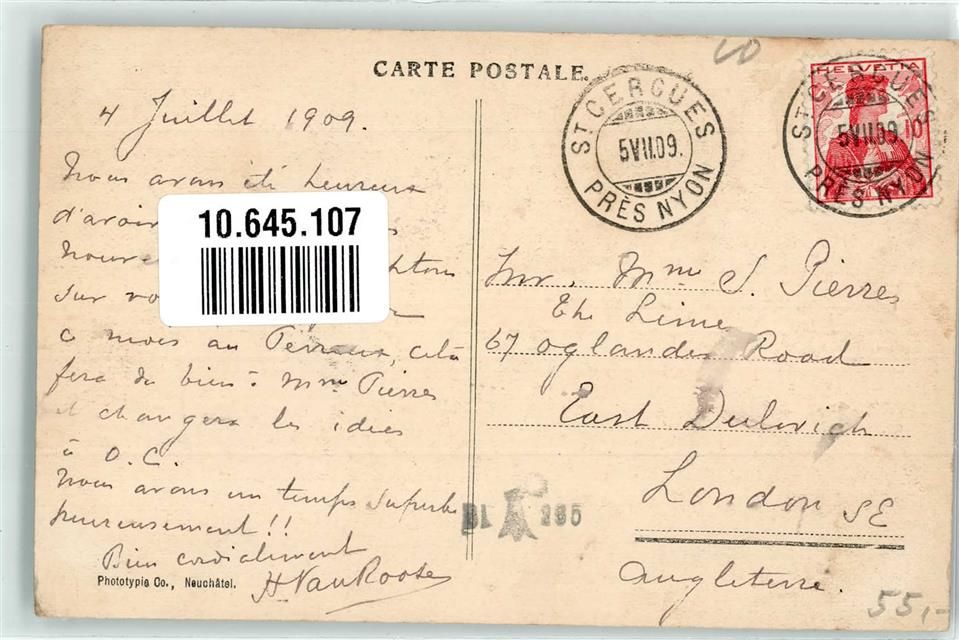 CARTE POSTALE.
4 Juillet 1909.
Nous avons été heureux
d'avoir
nouve
sur vo
ce mois au Perraux, cela
fera du bien à Mme Pierres
et changera les idées
à O.C.
Nous avons un temps superbe
heureusement!!
Bien cordialement
H VanRoose
Phototypie Co., Neuchâtel.
10.645.107
ST CERGUES
5 VII.09.
PRÈS NYON
HELVETIA
10
ST CERGUES
5 VII.09.
PRÈS NYON
Mr. Mme S. Pierres
The Lime
67 Oglander Road
East Dulwich
London SE
Angleterre.
BL 295
55,-